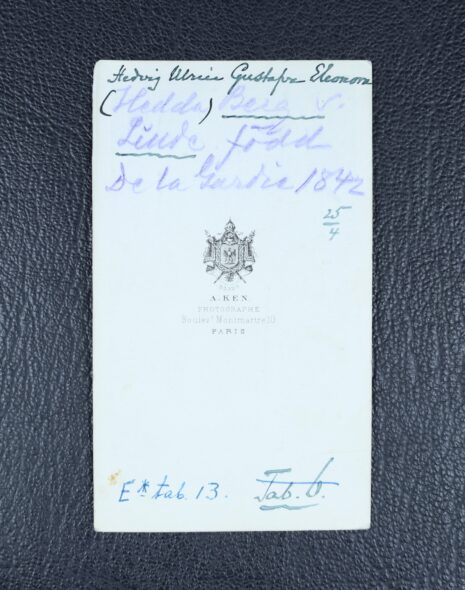 Hedvig Ulrica Gustafva Eleonora
(Hedda) Berg v.
Linde, född
De la Gardie 1842
25/4
A. KEN
PHOTOGRAPHE
Boulevt Montmartre 10
PARIS
E* tab. 13. Tab. V.